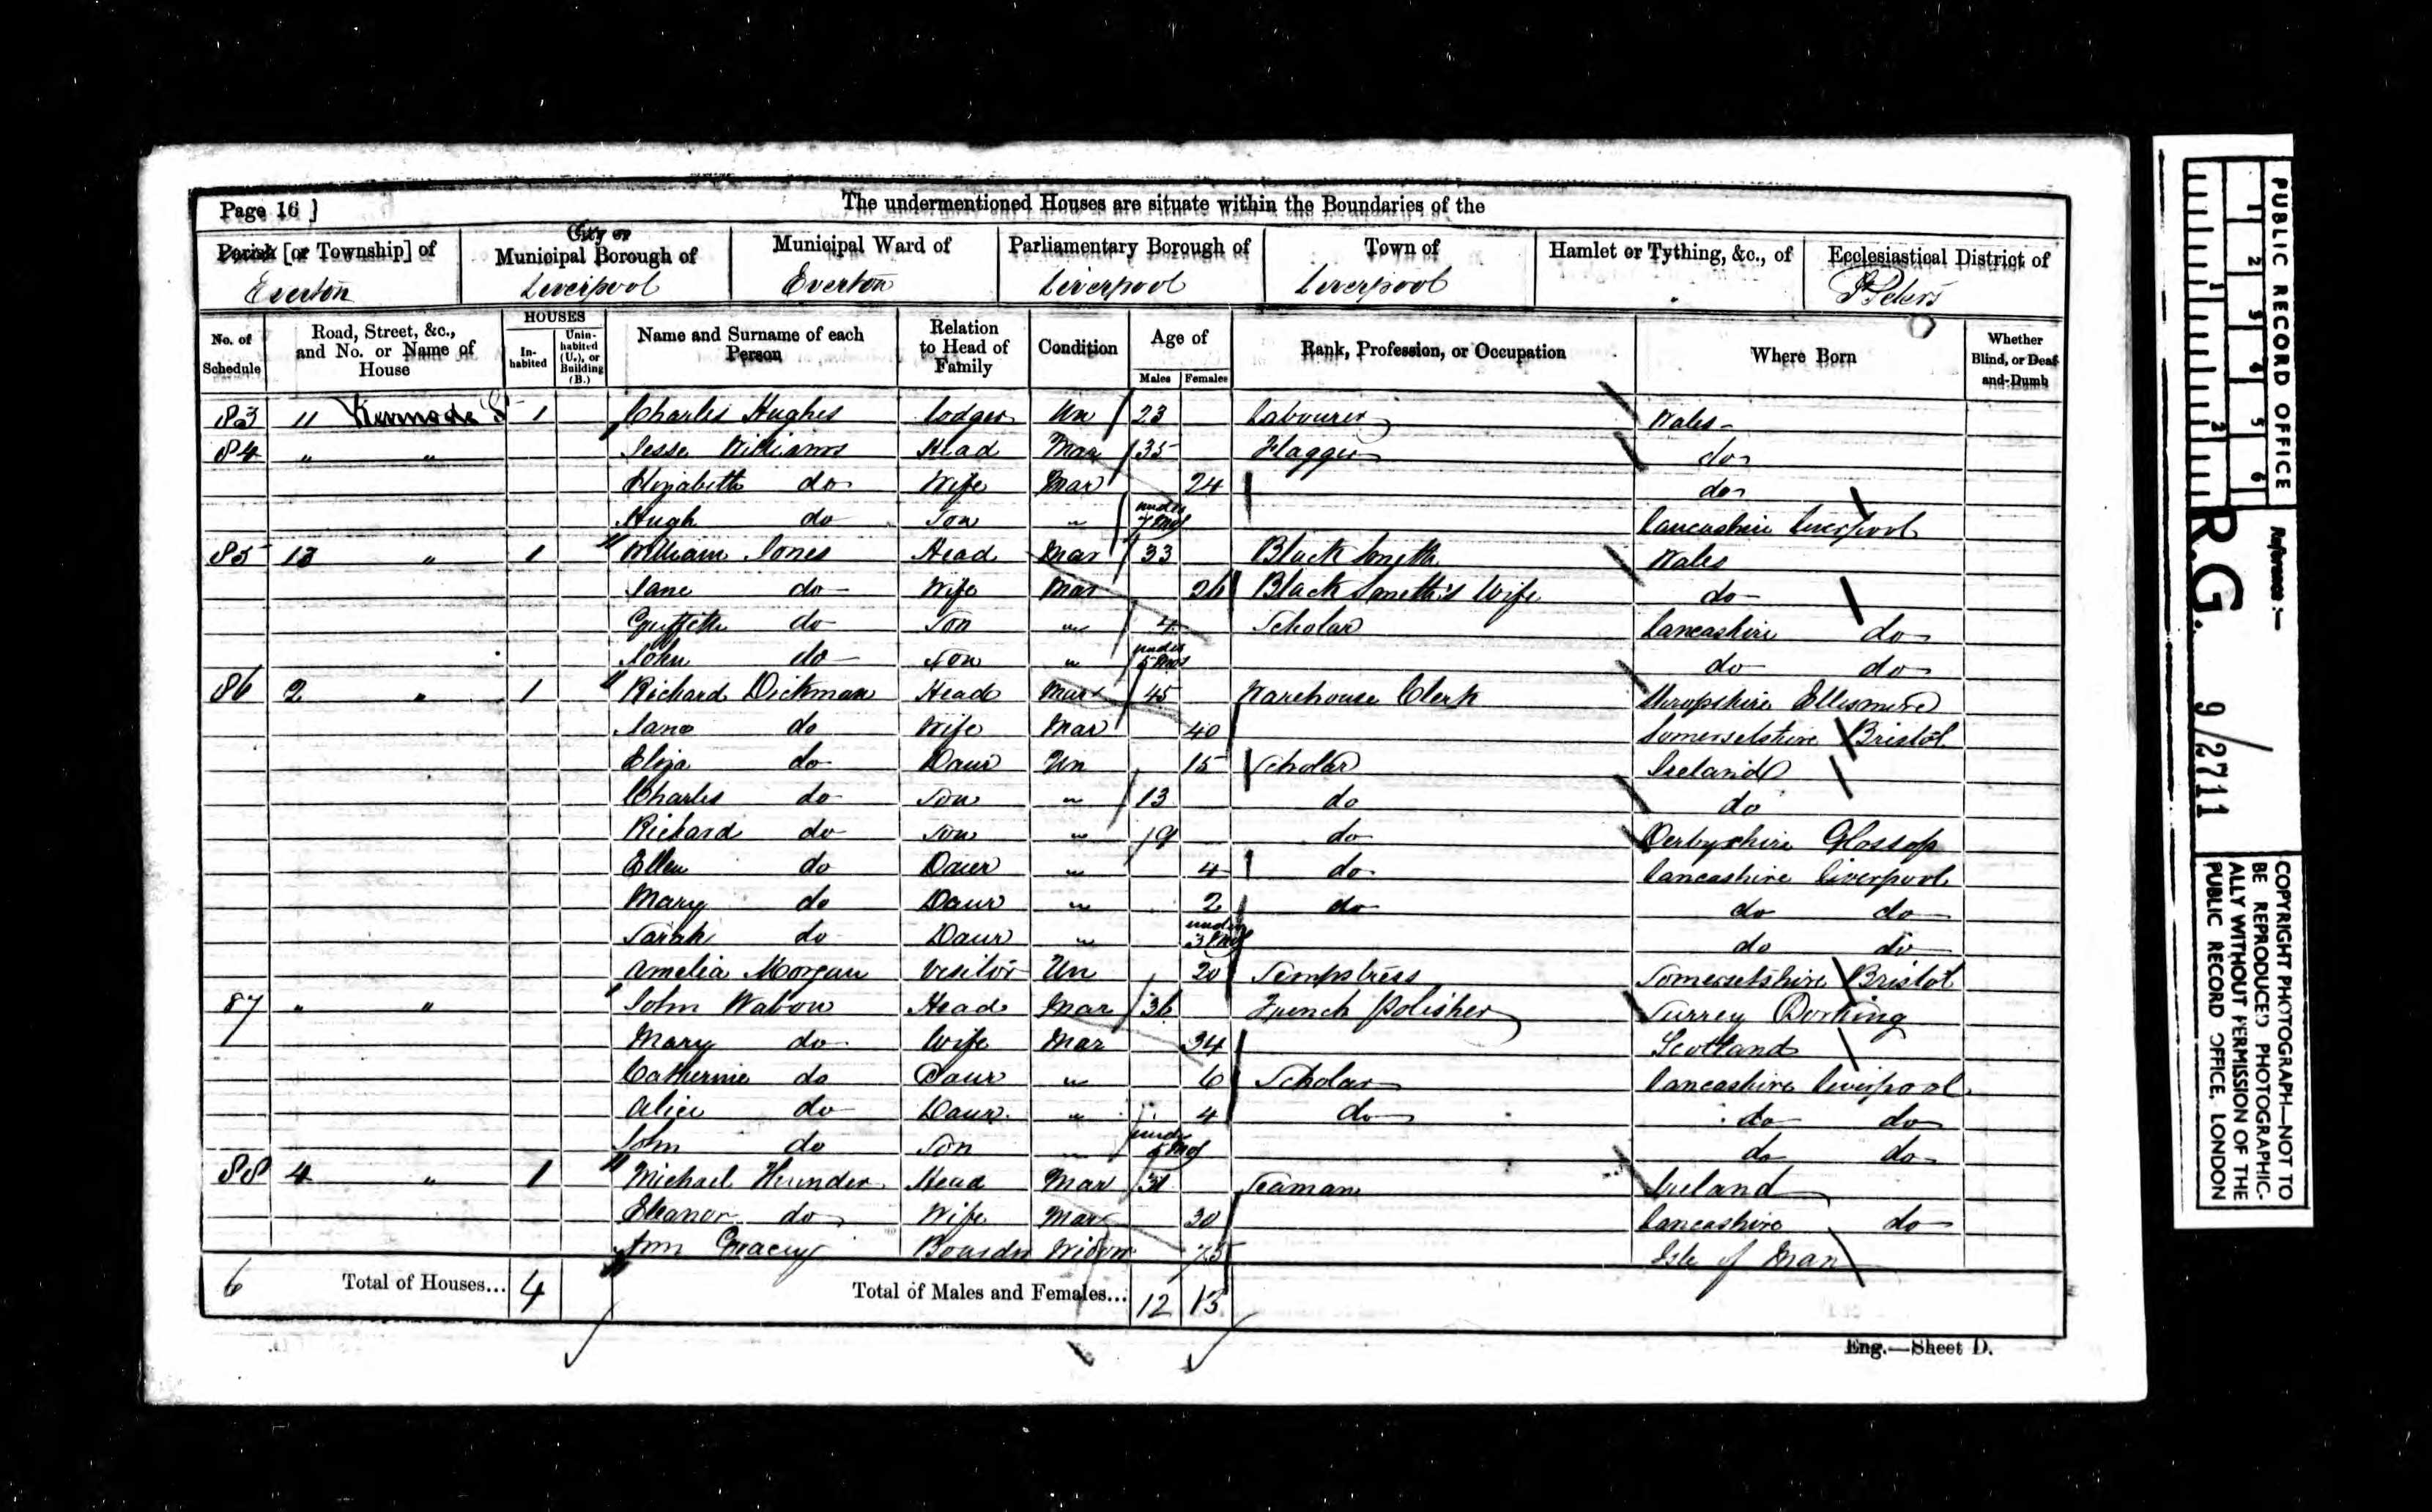 Page 16 ]
The undermentioned Houses are situate within the Boundaries of the
Parish [or Township] of
Everton
City or
Municipal Borough of
Liverpool
Municipal Ward of
Everton
Parliamentary Borough of
Liverpool
Town of
Liverpool
Hamlet or Tything, &c., of
Ecclesiastical District of
St Peters
No. of Schedule
Road, Street, &c., and No. or Name of House
HOUSES
In-habited
Unin-habited (U.), or Building (B.)
Name and Surname of each Person
Relation to Head of Family
Condition
Age of
Males
Females
Rank, Profession, or Occupation
Where Born
Whether Blind, or Deaf-and-Dumb
83 11 Kermode St 1 Charles Hughes Lodger Un 23 Labourer Wales
84 " " Jesse Williams Head Mar 35 Flagger do
Elizabeth do Wife Mar 24 do
Hugh do Son " under 7 Mos Lancashire Liverpool
85 13 " 1 William Jones Head Mar 33 Black Smith Wales
Jane do Wife Mar 26 Black Smith's Wife do
Griffith do Son " 4 Scholar Lancashire do
John do Son " under 5 Mos do do
86 2 " 1 Richard Dickman Head Mar 45 Warehouse Clerk Shropshire Ellismere
Jane do Wife Mar 40 Somersetshire Bristol
Eliza do Daur Un 15 Scholar Ireland
Charles do Son " 13 do do
Richard do Son " 9 do Derbyshire Glossop
Ellen do Daur " 4 do Lancashire Liverpool
Mary do Daur " 2 do do do
Sarah do Daur " under 3 Mos do do
Amelia Morgan Visitor Un 20 Sempstress Somersetshire Bristol
87 " " John Wabon Head Mar 36 French Polisher Surrey Dorking
Mary do Wife Mar 34 Scotland
Catherine do Daur " 6 Scholar Lancashire Liverpool
Alice do Daur " 4 do do do
John do Son " under Mos do do
88 4 " 1 Michael Head Mar 31 Seaman Ireland
Eleanor do Wife Mar 30 Lancashire do
Ann Boarder Widow 75 Isle of Man
6 Total of Houses... 4 Total of Males and Females... 12 13
Eng.—Sheet D.
PUBLIC RECORD OFFICE
1 2 3 4 5 6
1 2
Reference :—
R.G. 9/2711
COPYRIGHT PHOTOGRAPH—NOT TO
BE REPRODUCED PHOTOGRAPHIC-
ALLY WITHOUT PERMISSION OF THE
PUBLIC RECORD OFFICE, LONDON